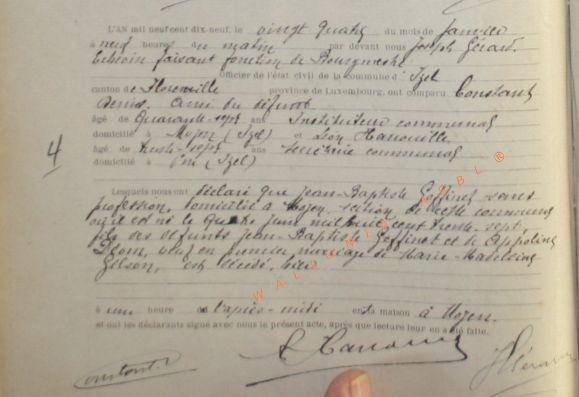 L'AN mil neuf cent dix-neuf, le vingt quatre du mois de Janvier
à neuf heures du matin par devant nous Joseph Gérard,
Echevin faisant fonction de Bourgmestre
Officier de l'état civil de la commune d'Izel
canton de Florenville province de Luxembourg, ont comparu Constant
Denis, Ami du défunt
âgé de Quarante-sept ans Instituteur communal
domicilié à Moyen (Izel) et Léon Hanouille
âgé de trente-sept ans secrétaire communal
domicilié à (Izel)
4
Lesquels nous ont déclaré que Jean-Baptiste Goffinet, sans
profession, domicilié à Moyen, section de cette commune
où il est né le quatre juin mil huit cent trente-sept,
fils des défunts Jean-Baptiste Goffinet et de Appoline
veuf en premier mariage de Marie-Madeleine
Gilson, est décédé, hier
à une heure de l'après-midi en sa maison à Moyen.
et ont les déclarants signé avec nous le présent acte, après que lecture leur en a été faite.
L Hanouille
Constant. D
J Gérard
WALLONIE BL ®